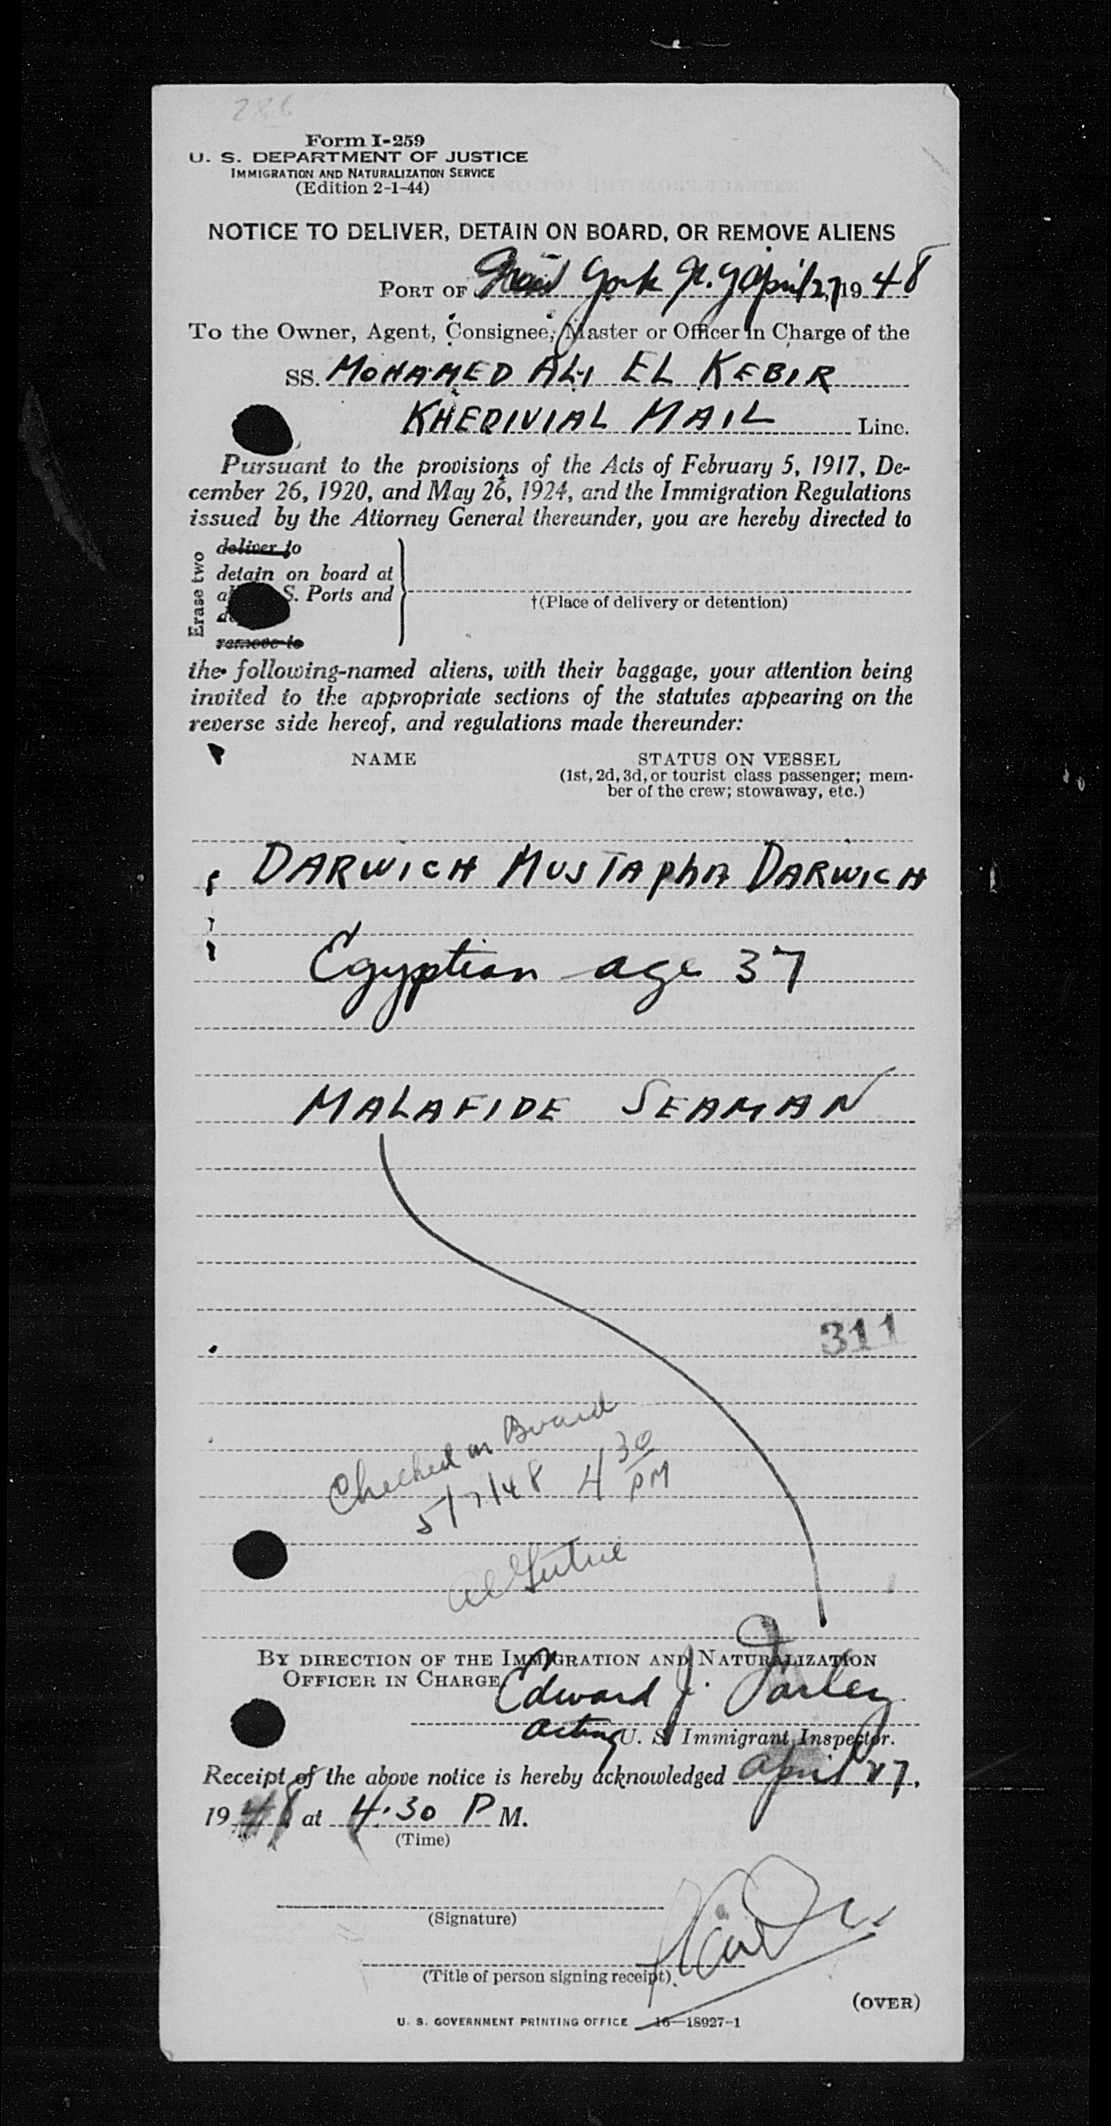 286
Form I-259
U. S. DEPARTMENT OF JUSTICE
IMMIGRATION AND NATURALIZATION SERVICE
(Edition 2-1-44)
NOTICE TO DELIVER, DETAIN ON BOARD, OR REMOVE ALIENS
PORT OF New York N.Y. April 27, 1948
To the Owner, Agent, Consignee, Master or Officer in Charge of the
SS. MOHAMED ALI EL KEBIR
KHEDIVIAL MAIL Line.
Pursuant to the provisions of the Acts of February 5, 1917, De-
cember 26, 1920, and May 26, 1924, and the Immigration Regulations
issued by the Attorney General thereunder, you are hereby directed to
Erase two
deliver to
detain on board at
S. Ports and
remove to
†(Place of delivery or detention)
the following-named aliens, with their baggage, your attention being
invited to the appropriate sections of the statutes appearing on the
reverse side hereof, and regulations made thereunder:
NAME
STATUS ON VESSEL
(1st, 2d, 3d, or tourist class passenger; mem-
ber of the crew; stowaway, etc.)
DARWICH MUSTAPHA DARWICH
Egyptian age 37
MALAFIDE SEAMAN
311
Checked on Board
5/7/48 4 30 PM
BY DIRECTION OF THE IMMIGRATION AND NATURALIZATION
OFFICER IN CHARGE
Edward J.
Acting U. S. Immigrant Inspector.
Receipt of the above notice is hereby acknowledged April 27,
1948 at 4:30 P M.
(Time)
(Signature)
(Title of person signing receipt)
(OVER)
U. S. GOVERNMENT PRINTING OFFICE 16—18927-1